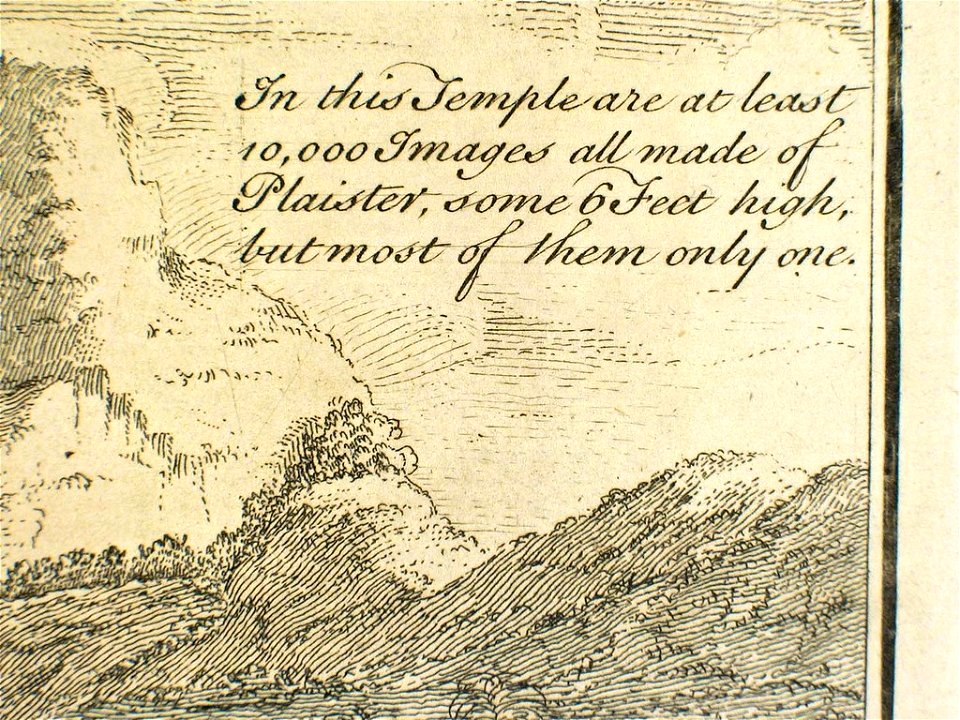 In this Temple are at least
10,000 Images all made of
Plaister, some 6 Feet high,
but most of them only one.